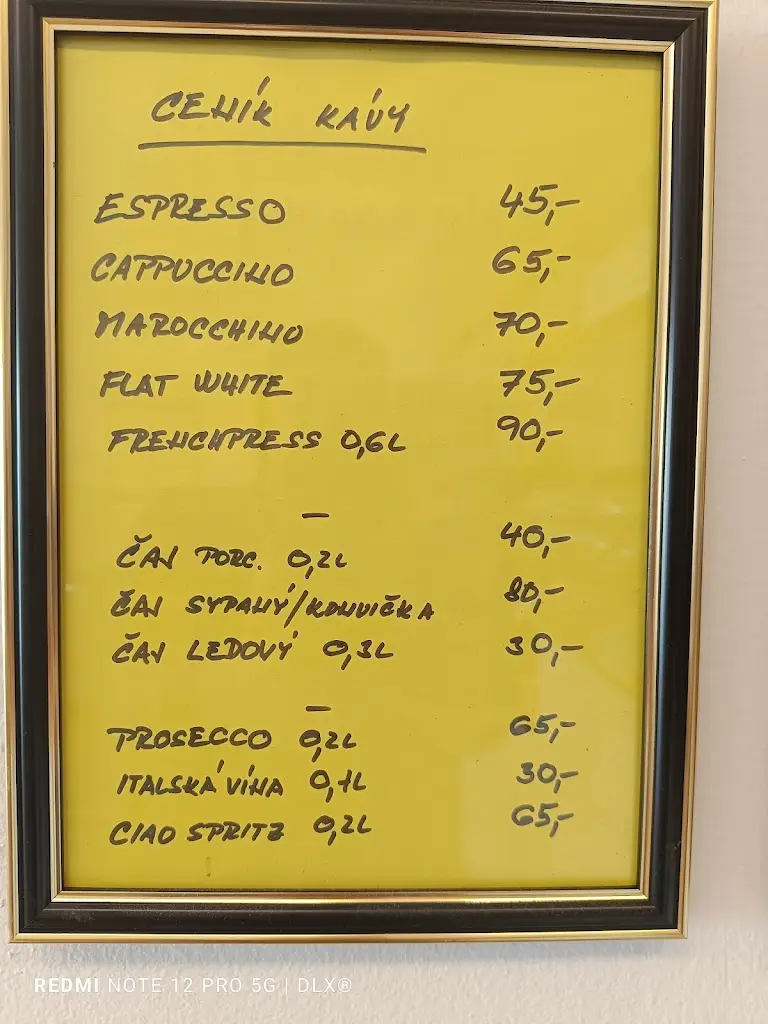 CENÍK KÁVY
ESPRESSO 45,-
CAPPUCCINO 65,-
MAROCCHINO 70,-
FLAT WHITE 75,-
FRENCHPRESS 0,6L 90,-
—
ČAJ PORC. 0,2L 40,-
ČAJ SYPANÝ/KONVIČKA 80,-
ČAJ LEDOVÝ 0,3L 30,-
—
PROSECCO 0,2L 65,-
ITALSKÁ VÍNA 0,1L 30,-
CIAO SPRITZ 0,2L 65,-
REDMI NOTE 12 PRO 5G | DLX®